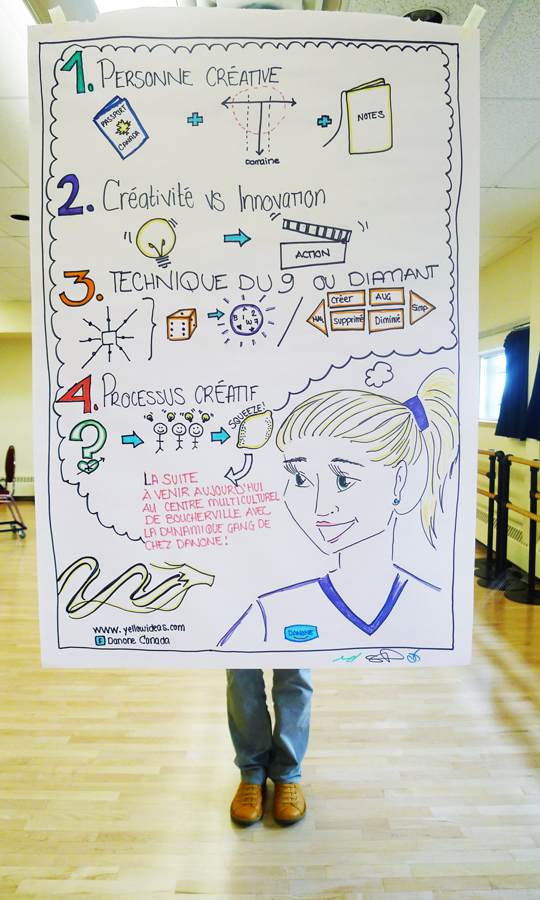 1. PERSONNE CRÉATIVE
PASSPORT
CANADA
NOTES
Domaine
2. Créativité vs Innovation
ACTION
3. TECHNIQUE DU 9 OU DIAMANT
créer AUG
Simp.
supprimé Diminué
4. PROCESSUS CRÉATIF
?
SQUEEZE!
LA SUITE
À VENIR AUJOURD'HUI
AU CENTRE MULTICULTUREL
DE BOUCHERVILLE AVEC
LA DYNAMIQUE GANG DE
CHEZ DANONE!
DANONE
www.yellowideas.com
f Danone Canada